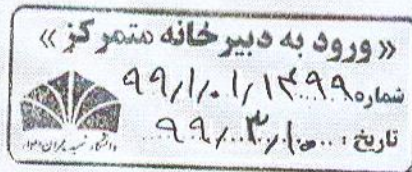 «ورود به دبیرخانه متمرکز»
شماره ۹۹/۱/۰۱/۱۳۹۹
تاریخ : ۹۹/۳/۱۰
دانشگاه شهید چمران اهواز